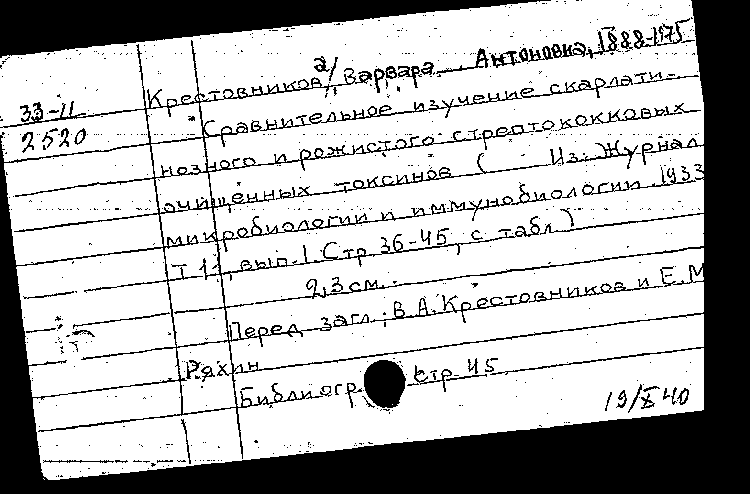 33-11
2520
Крестовников/а/, Варвара Антоновна, 1888-1975
Сравнительное изучение скарлати-
нозного и рожистого стрептококковых
очищенных токсинов ( Из: Журнал
микробиологии и иммунобиологии. 1933
Т 11, вып. 1. Стр. 36-45, с табл.)
2,3 см.
Перед загл.: В.А. Крестовников и Е.М
Ряхин
Библиогр. стр 45
19/X 40